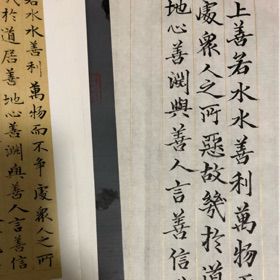 上善若水水善利萬物
處衆人之所惡故幾於道
地心善淵與善人言善信
若水水善利萬物而不争處衆人之所
於道居善地心善淵與善人言善信